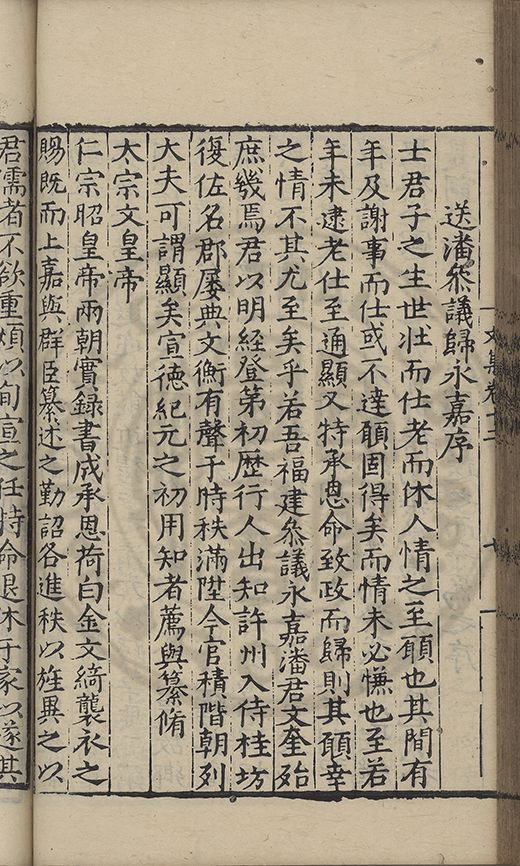 送潘叅議歸永嘉序
士君子之生世壯而仕老而休人情之至願也其間有
年及謝事而仕或不達願固得矣而情未必慊也至若
年未逮老仕至通顯又特承恩命致政而歸則其願幸
之情不其尤至矣乎若吾福建叅議永嘉潘君文奎殆
庶幾焉君以明經登第初歷行人出知許州入侍桂坊
復佐名郡屢典文衡有聲于時秩滿陞今官積階朝列
大夫可謂顯矣宣德紀元之初用知者薦與纂脩
太宗文皇帝
仁宗昭皇帝兩朝實録書成承恩荷白金文綺襲衣之
賜既而上嘉與群臣纂述之勤詔各進秩以旌異之以
君儒者不欲重煩以旬宣之任特命退休于家以遂其